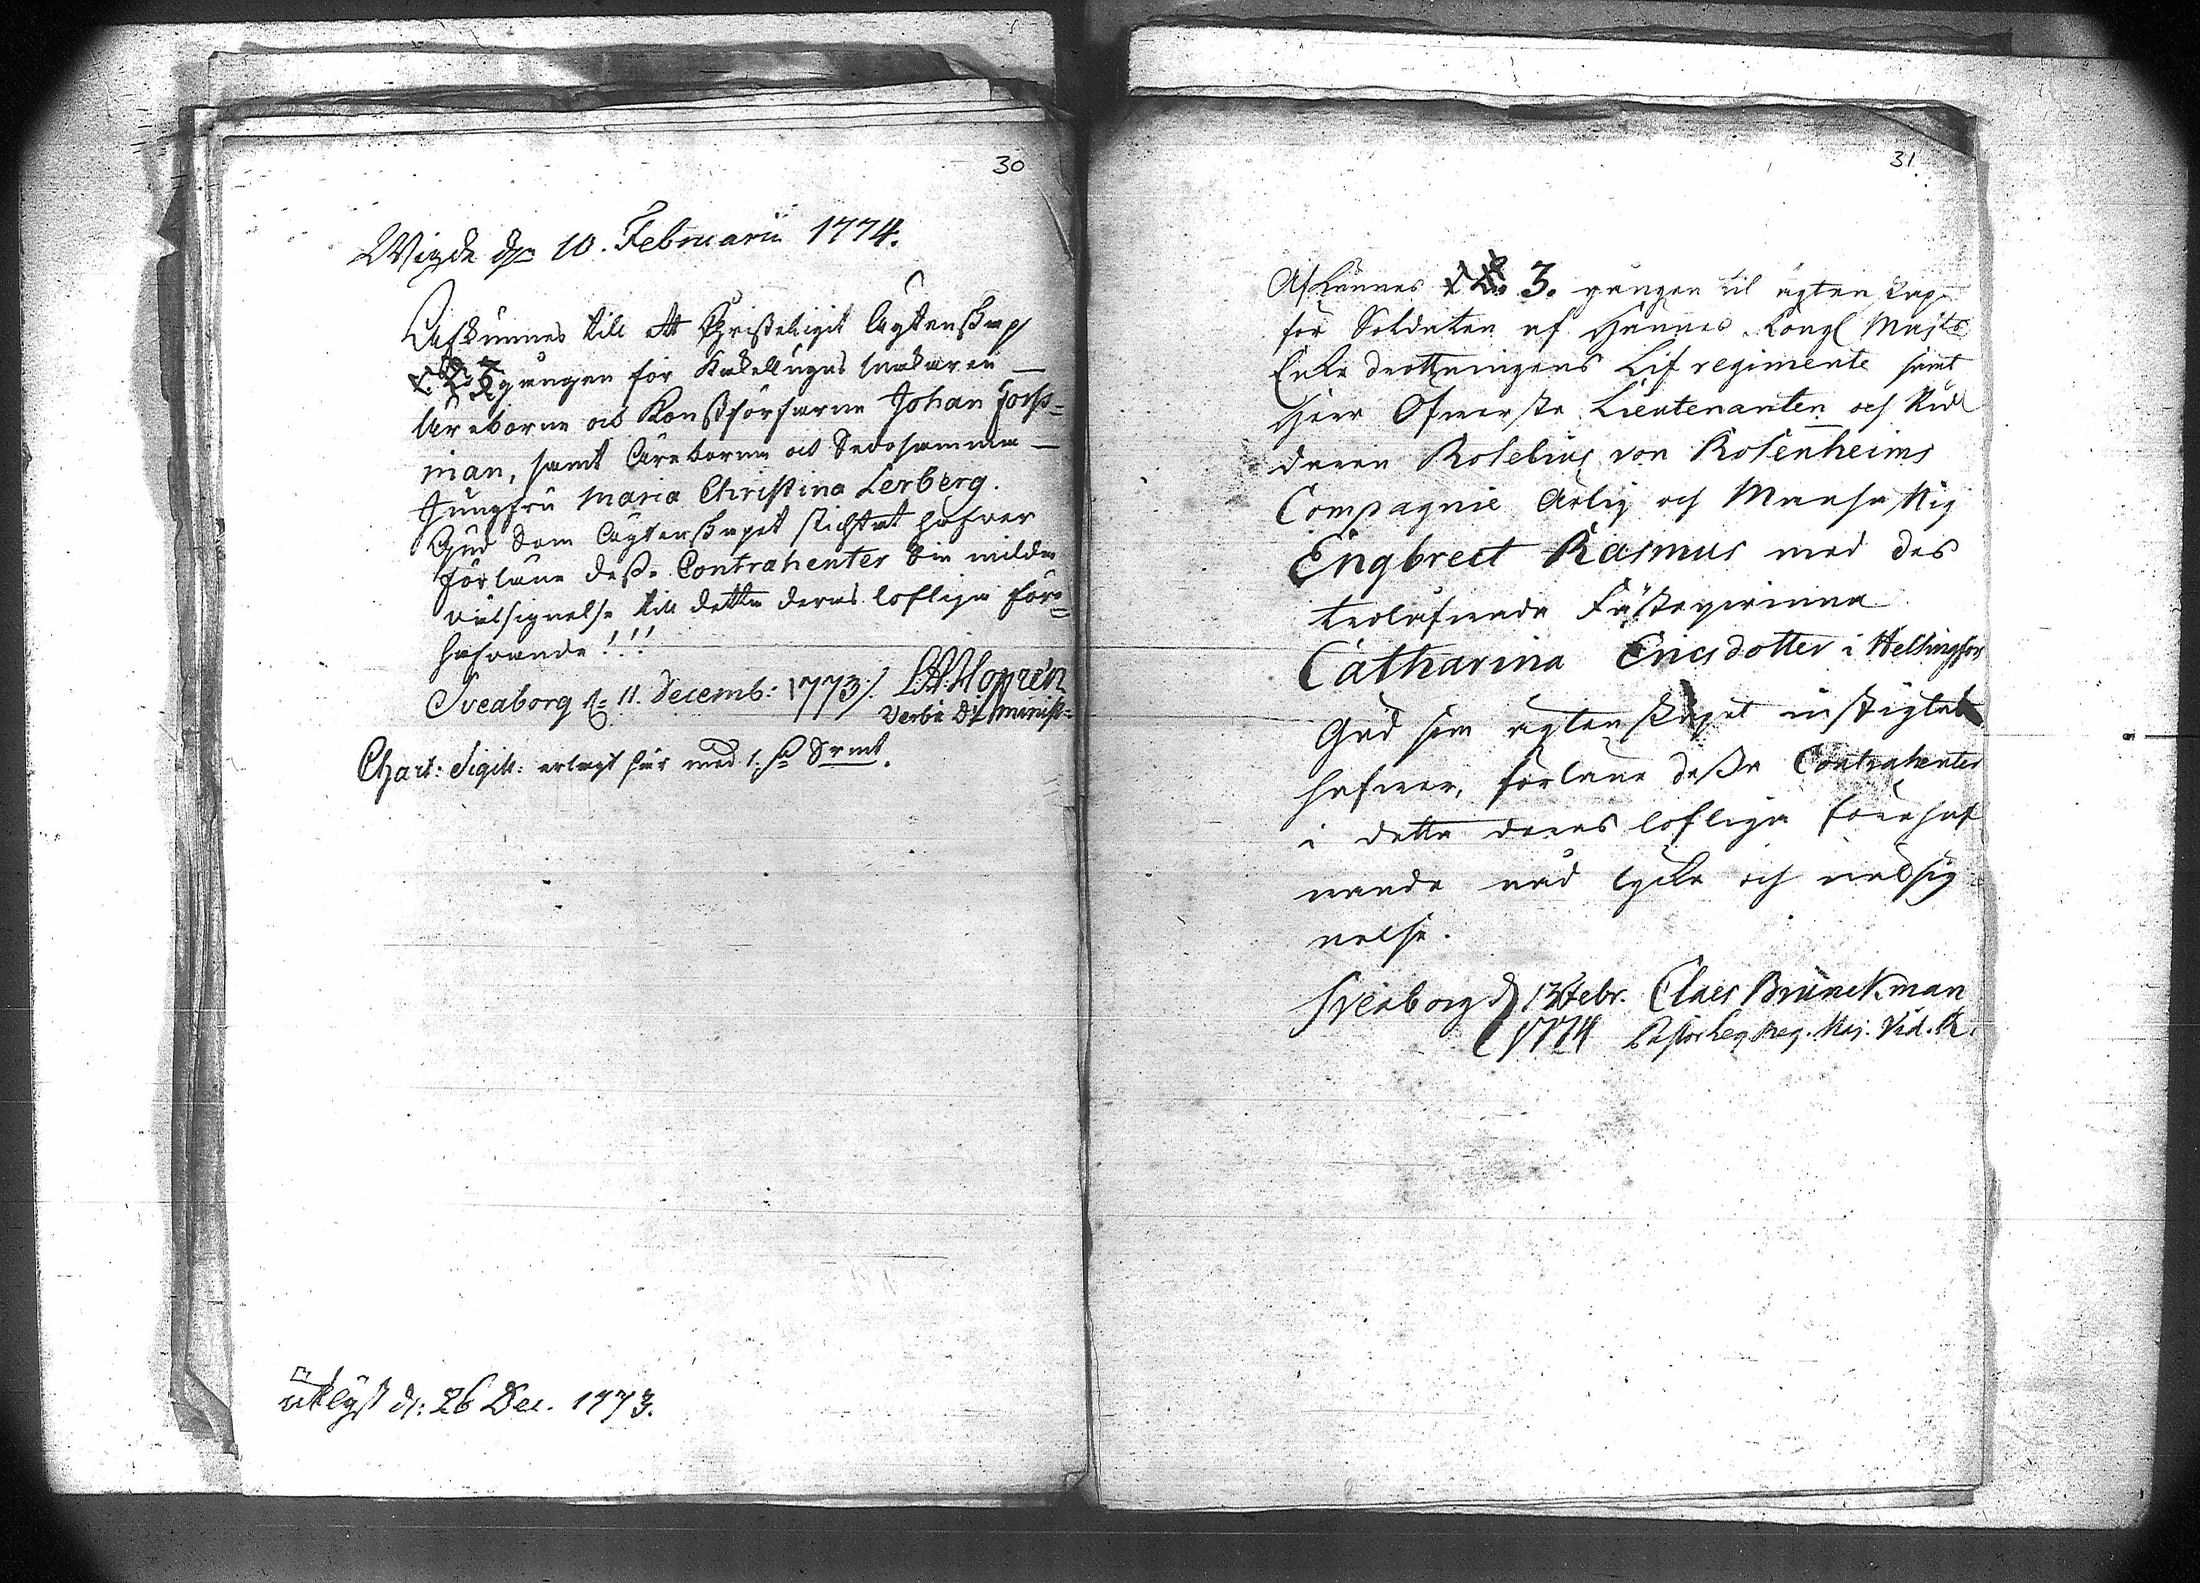 30
Wigde d. 10. Februarii 1774.
Aflÿnnes till ett Christeligit Ägtenskap
gången för Kakellugns makaren
Äreborne och Konstförfarne Johan Forss=
man, samt Äreborna och Sedosamma
Jungfru Maria Christina Lerberg.
Gud som Ägtenskapet stichtat hafver
förläne desse Contrahenter sin milda
välsignelse till detta deras lofliga före=
hafvande!!!
Sveaborg d. 11. Decemb: 1773.
Verbi Di Minist:
Chart: Sigill: erlagt här med 1. Srmt.
utlyst d: 26 Dec. 1773.
31
3. gången til ägtenskap
för Soldaten af Hennes Kongl Majts
Enke drottningens Lif regimente samt
Herr Öfverste Lieutenanten och Rid
daren von Rosenheims
Compagnie Ärlig och Manhaftig
Engbrect Rasmus med des
trolofvade Fästeqvinna
Catharina Ericsdotter i Helsingfors
Gud som ägtenskapet instigtat
hafver, förläne dessa Contrahenter
i detta deras lofliga förehaf
vande nåd lycka och välsig
nelse.
Sveaborg d 13 Febr. Claes Brunckman
1774